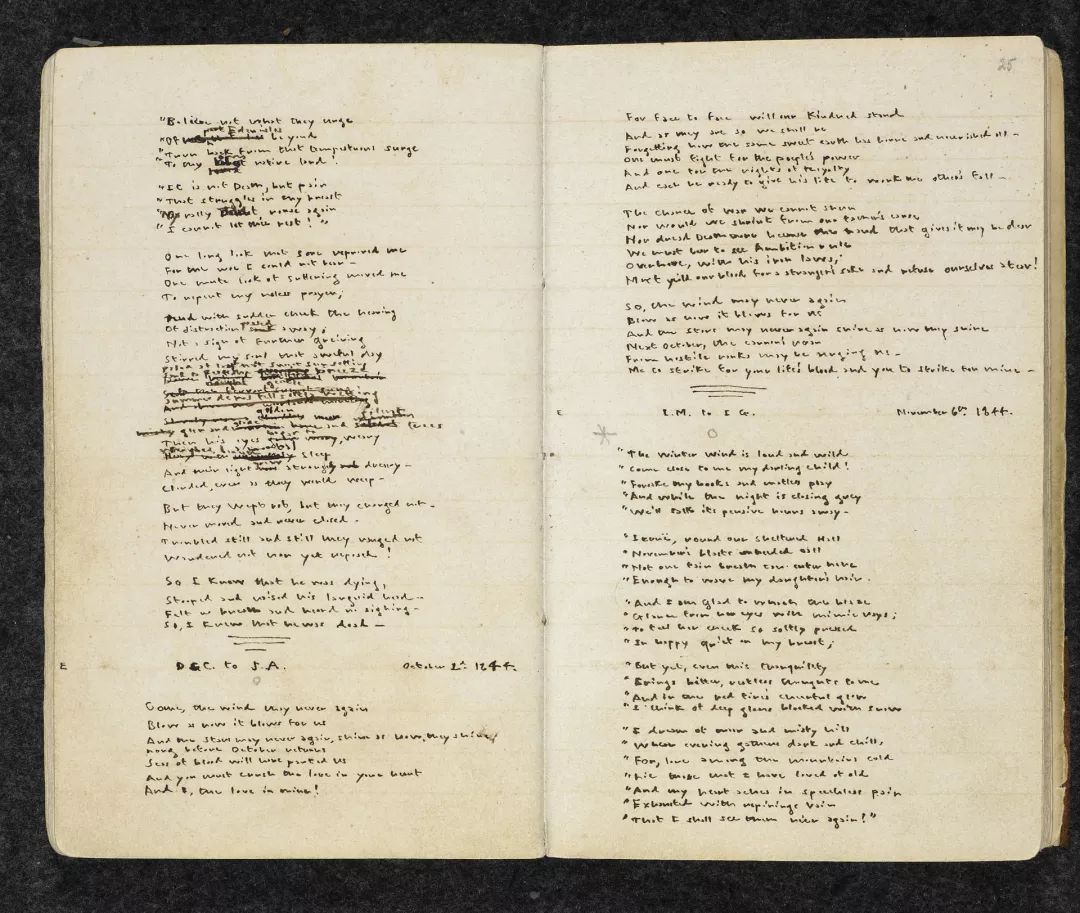 "Believe not what they urge
past Eden isles
"Of beyond
"Turn back from that tempestuous surge
"To thy native land!
"It is not Death, but pain
"That struggles in thy breast
"Nay rally rouse again
"I cannot let thee rest!"
One long look that sore reproved me
For the woe I could not bear -
One mute look of suffering moved me
To repent my useless prayer;
And with sudden check the heaving
Of distraction passed away;
Not a sign of further grieving
Stirred my soul that awful day
Paled at last the sweet sun setting
Sunk to peace the
Summer dews fell softly wetting
glen and silent trees
Then his eyes began to weary
Weighed beneath sleep
And their light grew strangely dreary -
Clouded, even as they would weep -
But they wept not, but they changed not -
Never moved and never closed -
Troubled still and still they ranged not
Wandered not nor yet reposed!
So I knew that he was dying,
Stooped and raised his languid head -
Felt no breath and heard no sighing -
So, I knew that he was dead -
E D.G.C. to J.A. October 2d 1844.
Come, the wind may never again
Blow as now it blows for us
And the stars may never again, shine as now they shine;
Long before October returns
Seas of blood will have parted us
And you must crush the love in your heart
And I, the love in mine!
25
For face to face will our Kindred stand
And as they are so we shall be
Forgetting how the same sweet earth has borne and nourished all -
One must fight for the people's power
And one for the rights of Royalty
And each be ready to give his life to work the other's fall -
The chance of war we cannot shun
Nor would we shrink from our father's cause
Nor dread Death more because the hand that gives it may be dear
We must bear to see Ambition rule
Over Love, with his iron laws;
Must yield our blood for a stranger's sake and refuse ourselves a tear!
So, the wind may never again
Blow as now it blows for us
And the stars may never again shine as now they shine
Next October, the cannon's roar
From hostile ranks may be urging us -
Me to strike for your life's blood and you to strike for mine -
E I.M. to I G. November 6th 1844.
"The winter wind is loud and wild
"Come close to me my darling child!
"Forsake thy books and mateless play
"And while the night is closing grey
"We'll talk its pensive hours away -
"Iernë, round our sheltered Hall
"November's blasts unheeded call
"Not one faint breath can enter here
"Enough to wave my daughter's hair.
"And I am glad to watch the blaze
"Glance from her eyes with mimic rays;
"To feel her cheek so softly pressed
"In happy quiet on my breast;
"But yet, even this tranquility
"Brings bitter, restless thoughts to me
"And in the red fire's cheerful glow
"I think of deep glens blocked with snow
"I dream of moor and misty hill
"Where evening gathers dark and chill,
"For, lone among the mountains cold
"Lie those that I have loved of old
"And my heart aches in speechless pain
"Exhausted with repinings vain
"That I shall see them ne'er again!"